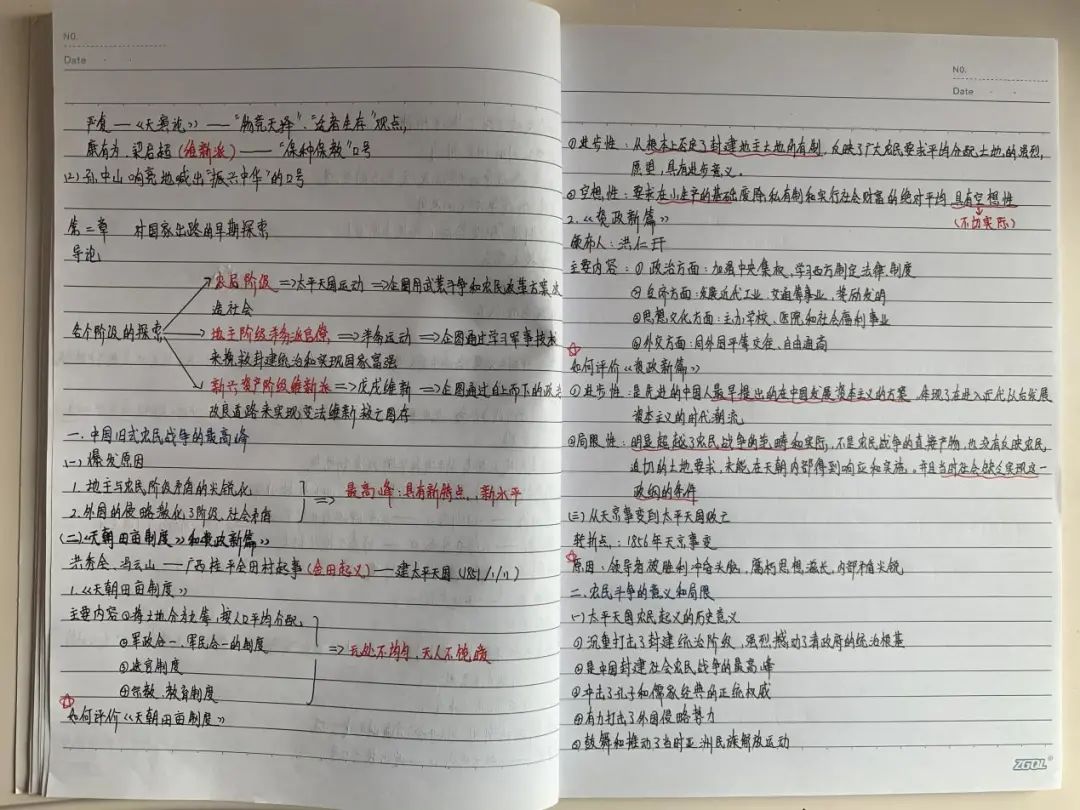 NO.
Date
严复—《天演论》—"物竞天择"、"适者生存"观点,
康有为、梁启超(维新派)——"保种保教"口号
(2)孙中山响亮地喊出"振兴中华"的口号
第二章 对国家出路的早期探索
导论
各个阶级的探索
农民阶级=>太平天国运动=>企图用武装斗争和农民政策方案改
造社会
地主阶级洋务派官僚=>洋务运动=>企图通过学习军事技术
来挽救封建统治和实现国家富强
新兴资产阶级维新派=>戊戌维新=>企图通过自上而下的政治
改良道路来实现变法维新救亡图存
一、中国旧式农民战争的最高峰
(一)爆发原因
1.地主与农民阶级矛盾的尖锐化
2.外国的侵略激化了阶级、社会矛盾
=>最高峰:具有新特点、新水平
(二)《天朝田亩制度》和《资政新篇》
洪秀全、冯云山——广西桂平金田村起事(金田起义)—建太平天国(1851/1/11)
1.《天朝田亩制度》
主要内容①将土地分为九等,按人口平均分配,
②军政合一、军民合一的制度
③选官制度
④宗教、教育制度
=>无处不均匀,无人不饱暖
☆
如何评价《天朝田亩制度》
NO.
Date
①进步性:从根本上否定了封建地主土地所有制,反映了广大农民要求平均分配土地的强烈,
愿望,具有进步意义。
②空想性:要求在小生产的基础废除私有制和实行社会财富的绝对平均,具有空想性
(不切实际)
2.《资政新篇》
颁布人:洪仁玕
主要内容:①政治方面:加强中央集权,学习西方制定法律、制度
②经济方面:发展近代工业、交通等事业,奖励发明
③思想文化方面:主办学校、医院和社会福利事业
④外交方面:同外国平等交往、自由通商
☆
如何评价《资政新篇》
①进步性:是先进的中国人最早提出的在中国发展资本主义的方案,体现了在进入近代以后发展
资本主义的时代潮流
②局限性:明显超越了农民战争的范畴和实际,不是农民战争的直接产物,也没有反映农民,
迫切的土地要求,未能在天朝内部得到响应和实施。并且当时社会缺乏实现这一
政纲的条件
(三)从天京事变到太平天国败亡
转折点:1856年天京事变
☆
原因:领导者被胜利冲昏头脑,腐朽思想滋长,内部矛盾尖锐
二、农民斗争的意义和局限
(一)太平天国农民起义的历史意义
①沉重打击了封建统治阶级,强烈撼动了清政府的统治根基
②是中国封建社会农民战争的最高峰
③冲击了孔子和儒家经典的正统权威
④有力打击了外国侵略势力
⑤鼓舞和推动了当时亚洲民族解放运动
ZGOL